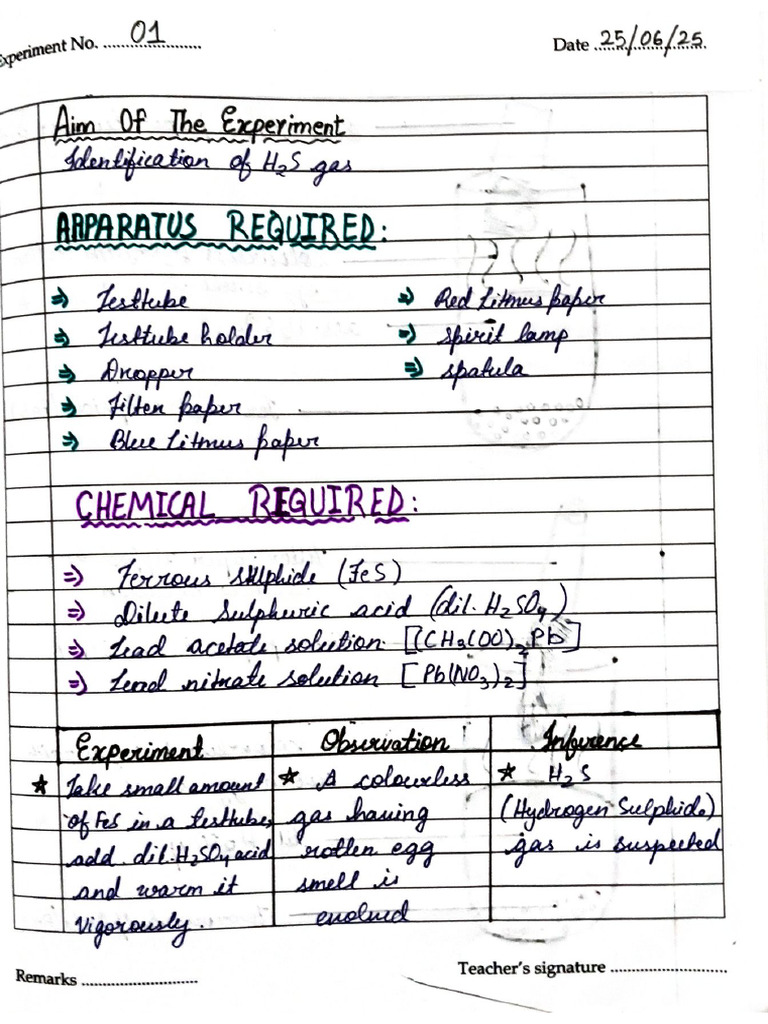 Experiment No. 01
Date 25/06/25
Aim Of The Experiment
Identification of H₂S gas
APPARATUS REQUIRED:
⇒ Testtube ⇒ Red Litmus paper
⇒ Testtube holder ⇒ spirit lamp
⇒ Dropper ⇒ spatula
⇒ Filter paper
⇒ Blue Litmus paper
CHEMICAL REQUIRED:
⇒ Ferrous sulphide (FeS)
⇒ Dilute Sulphuric acid (dil. H₂SO₄)
⇒ Lead acetate solution [(CH₃COO)₂Pb]
⇒ Lead nitrate solution [Pb(NO₃)₂]
Experiment Observation Inference
★ Take small amount ★ A colourless ★ H₂S
of FeS in a testtube, gas having (Hydrogen Sulphide)
add dil. H₂SO₄ acid rotten egg gas is suspected
and warm it smell is
Vigorously. evolved
Remarks
Teacher's signature